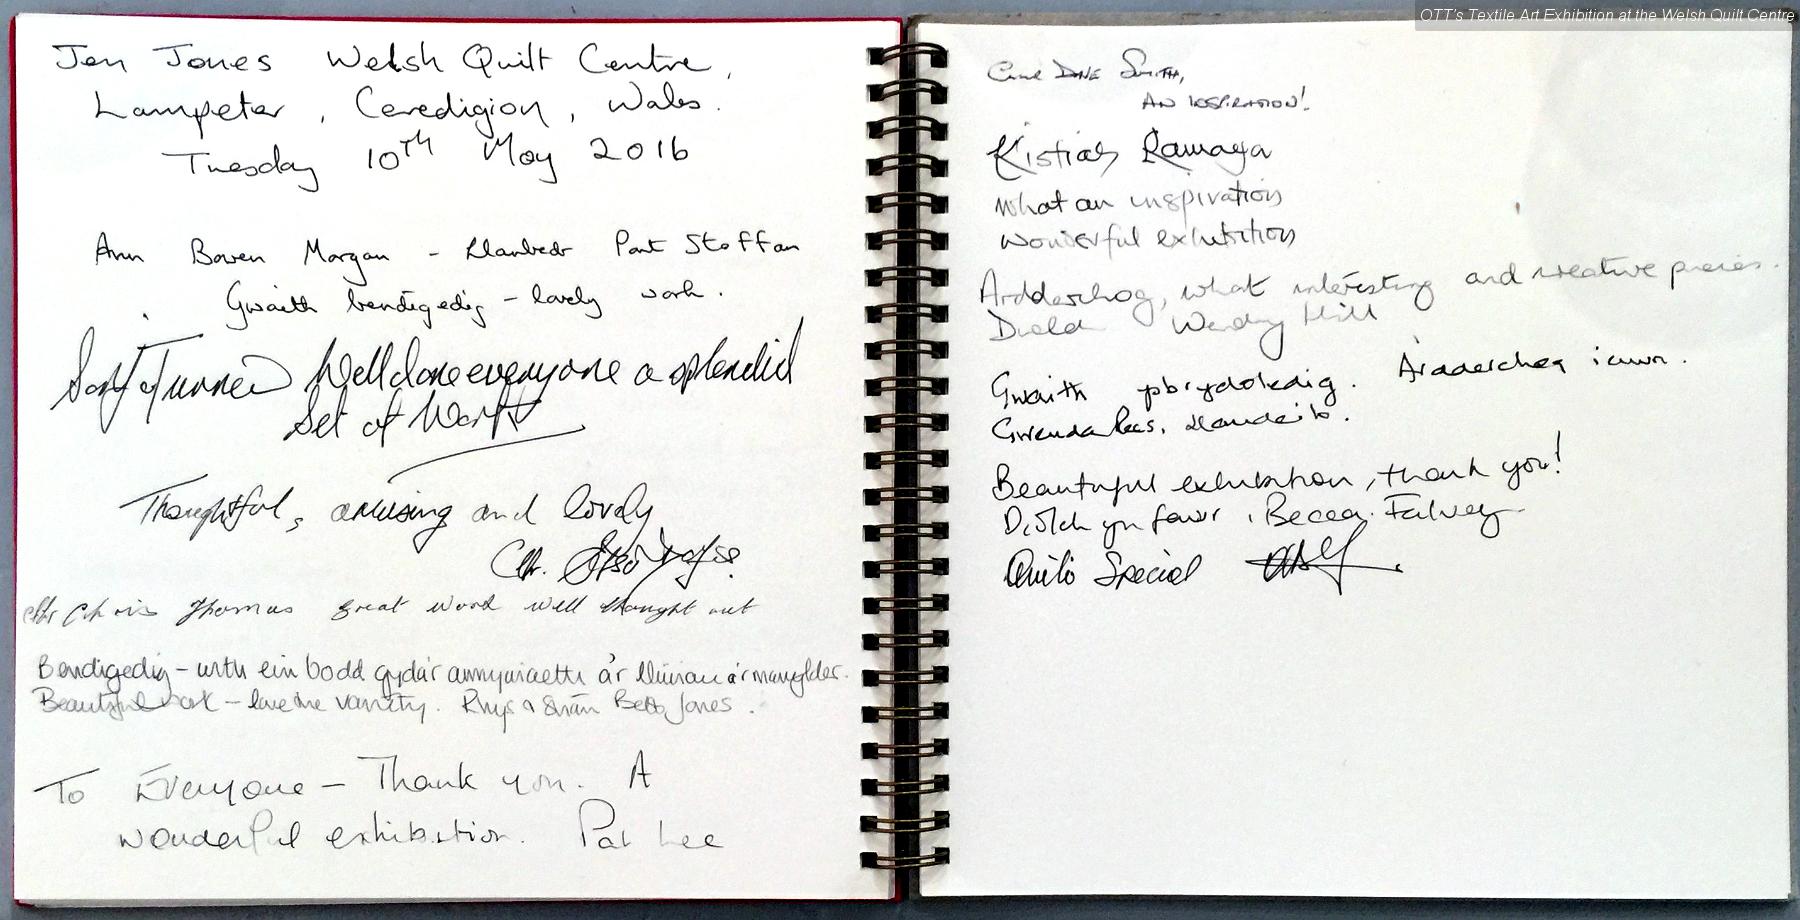 OTT's Textile Art Exhibition at the Welsh Quilt Centre
Jen Jones Welsh Quilt Centre,
Lampeter, Ceredigion, Wales.
Tuesday 10TH May 2016
Ann Bowen Morgan - Llanbedr Pont Steffan
Gwaith bendigedig - lovely work.
Turner Well done everyone a splendid
Set of Work
Thoughtful, amusing and lovely
Cllr.
Cllr Chris Thomas great work well thought out
Bendigedig - wrth ein bodd gyda'r amrywiaeth a'r lliwiau a'r manylder.
Beautiful work - love the variety. Rhys a Siân Bebb Jones.
To Everyone - Thank you. A
wonderful exhibition. Pat Lee
Smith,
AN INSPIRATION!
Kistiah Ramaya
What an inspiration
Wonderful exhibition
Ardderchog, what interesting and creative pieces.
Diolch Wendy Hill
Gwaith ysbrydoledig. Ardderchog iawn.
Gwenda Rees, Llandeilo.
Beautiful exhibition, thank you!
Diolch yn fawr, Becca Falvey
Quite Special